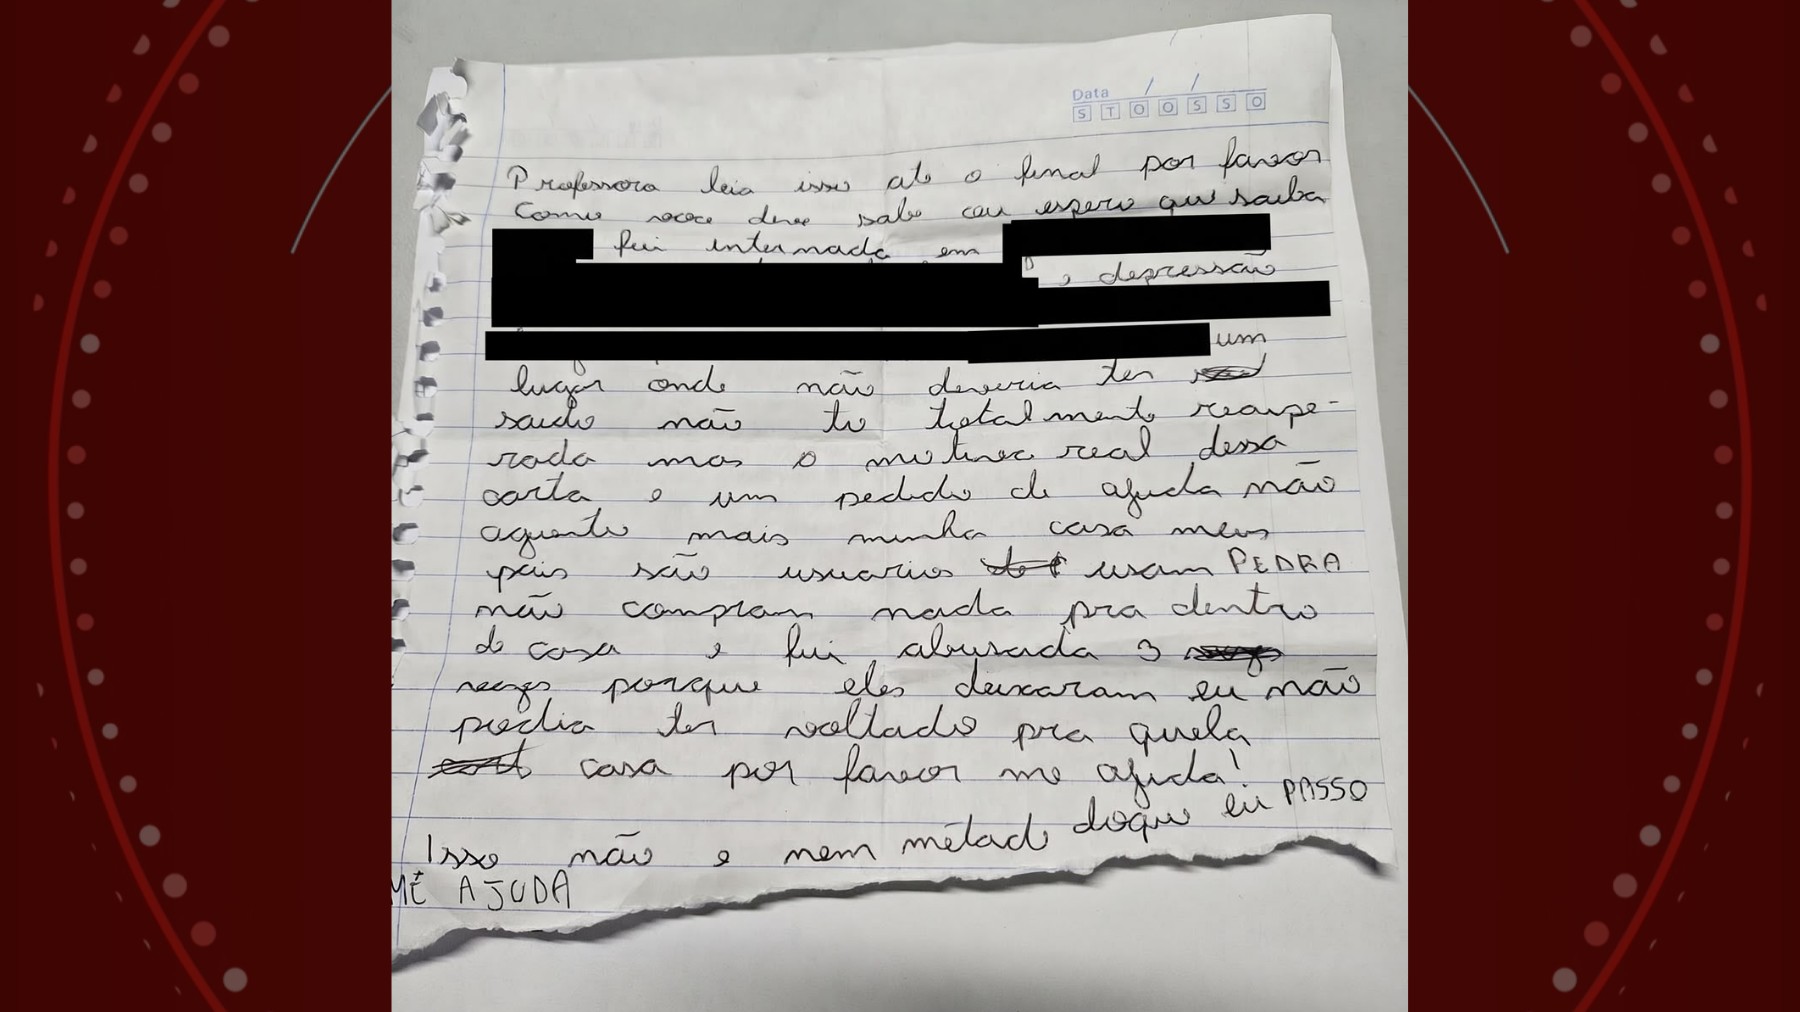 Data / /
S T Q Q S S D
Professora leia isso ate o final por favor
Como voce deve sabe ou espero que saiba
fui internada em
, depressão
um
lugar onde não deveria ter
saido não to totalmente recupe-
rada mas o motivo real dessa
carta e um pedido de ajuda não
aguento mais minha casa meus
pais são usuarios usam PEDRA
não compram nada pra dentro
de casa e fui abusada 3
vezes porque eles deixaram eu não
podia ter voltado pra quela
casa por favor me ajuda!
Isso não e nem métade doque eu PASSO
ME AJUDA